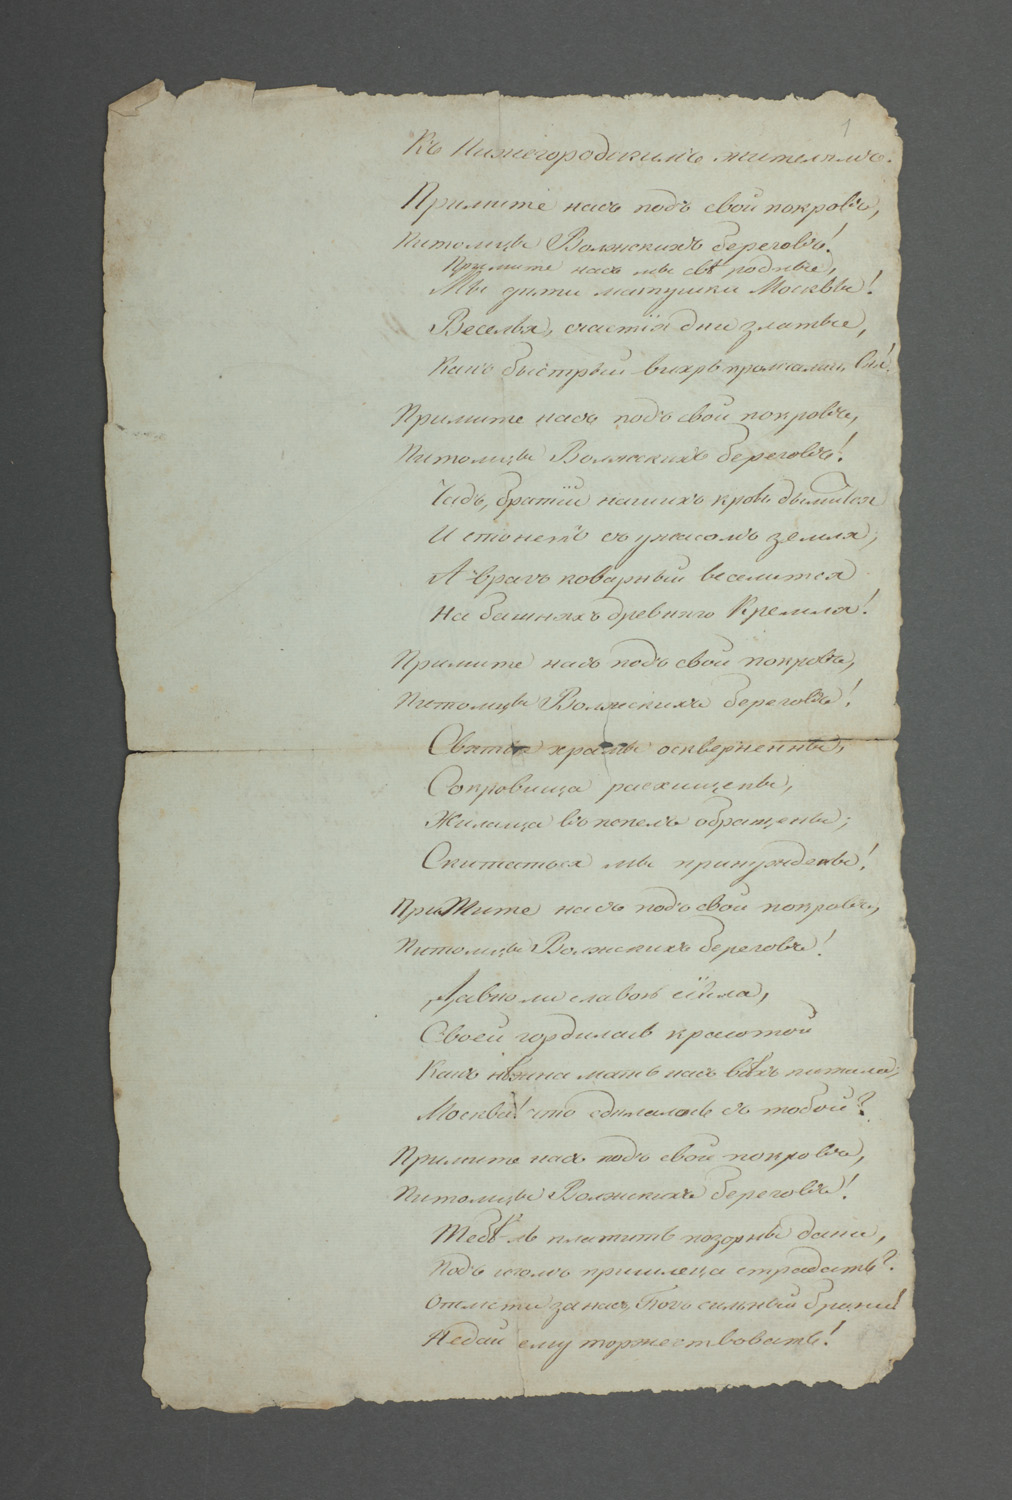 1
Къ Нижегородскимъ жителямъ.
Примите насъ подъ свой покровъ,
Питомцы Волжскихъ береговъ!
Примите насъ мы всѣ родные,
Мы дѣти матушки Москвы!
Веселья, счастія дни златые,
Какъ быстрый вихрь промчались
Примите насъ подъ свой покровъ,
Питомцы Волжскихъ береговъ!
Чадъ, братій нашихъ кровь дымится
И стонетъ съ ужасомъ земля;
А врагъ коварный веселится
На башняхъ древняго Кремля!
Примите насъ подъ свой покровъ,
Питомцы Волжскихъ береговъ!
Святые храмы оскверненны,
Сокровища расхищены,
Жилища въ пепелъ обращены;
Скитаться мы принуждены!
Примите насъ подъ свой покровъ,
Питомцы Волжскихъ береговъ!
Давноли славою сіяла,
Своей гордилась красотой
Какъ нѣжна мать насъ всѣхъ питала;
Москва! что сдѣлалось съ тобой?
Примите насъ подъ свой покровъ,
Питомцы Волжскихъ береговъ!
Тебѣ-ль платить позорны дани,
Подъ игомъ пришлеца страдать?
Отмсти за насъ, Богъ сильный брани!
Недай ему торжествовать!